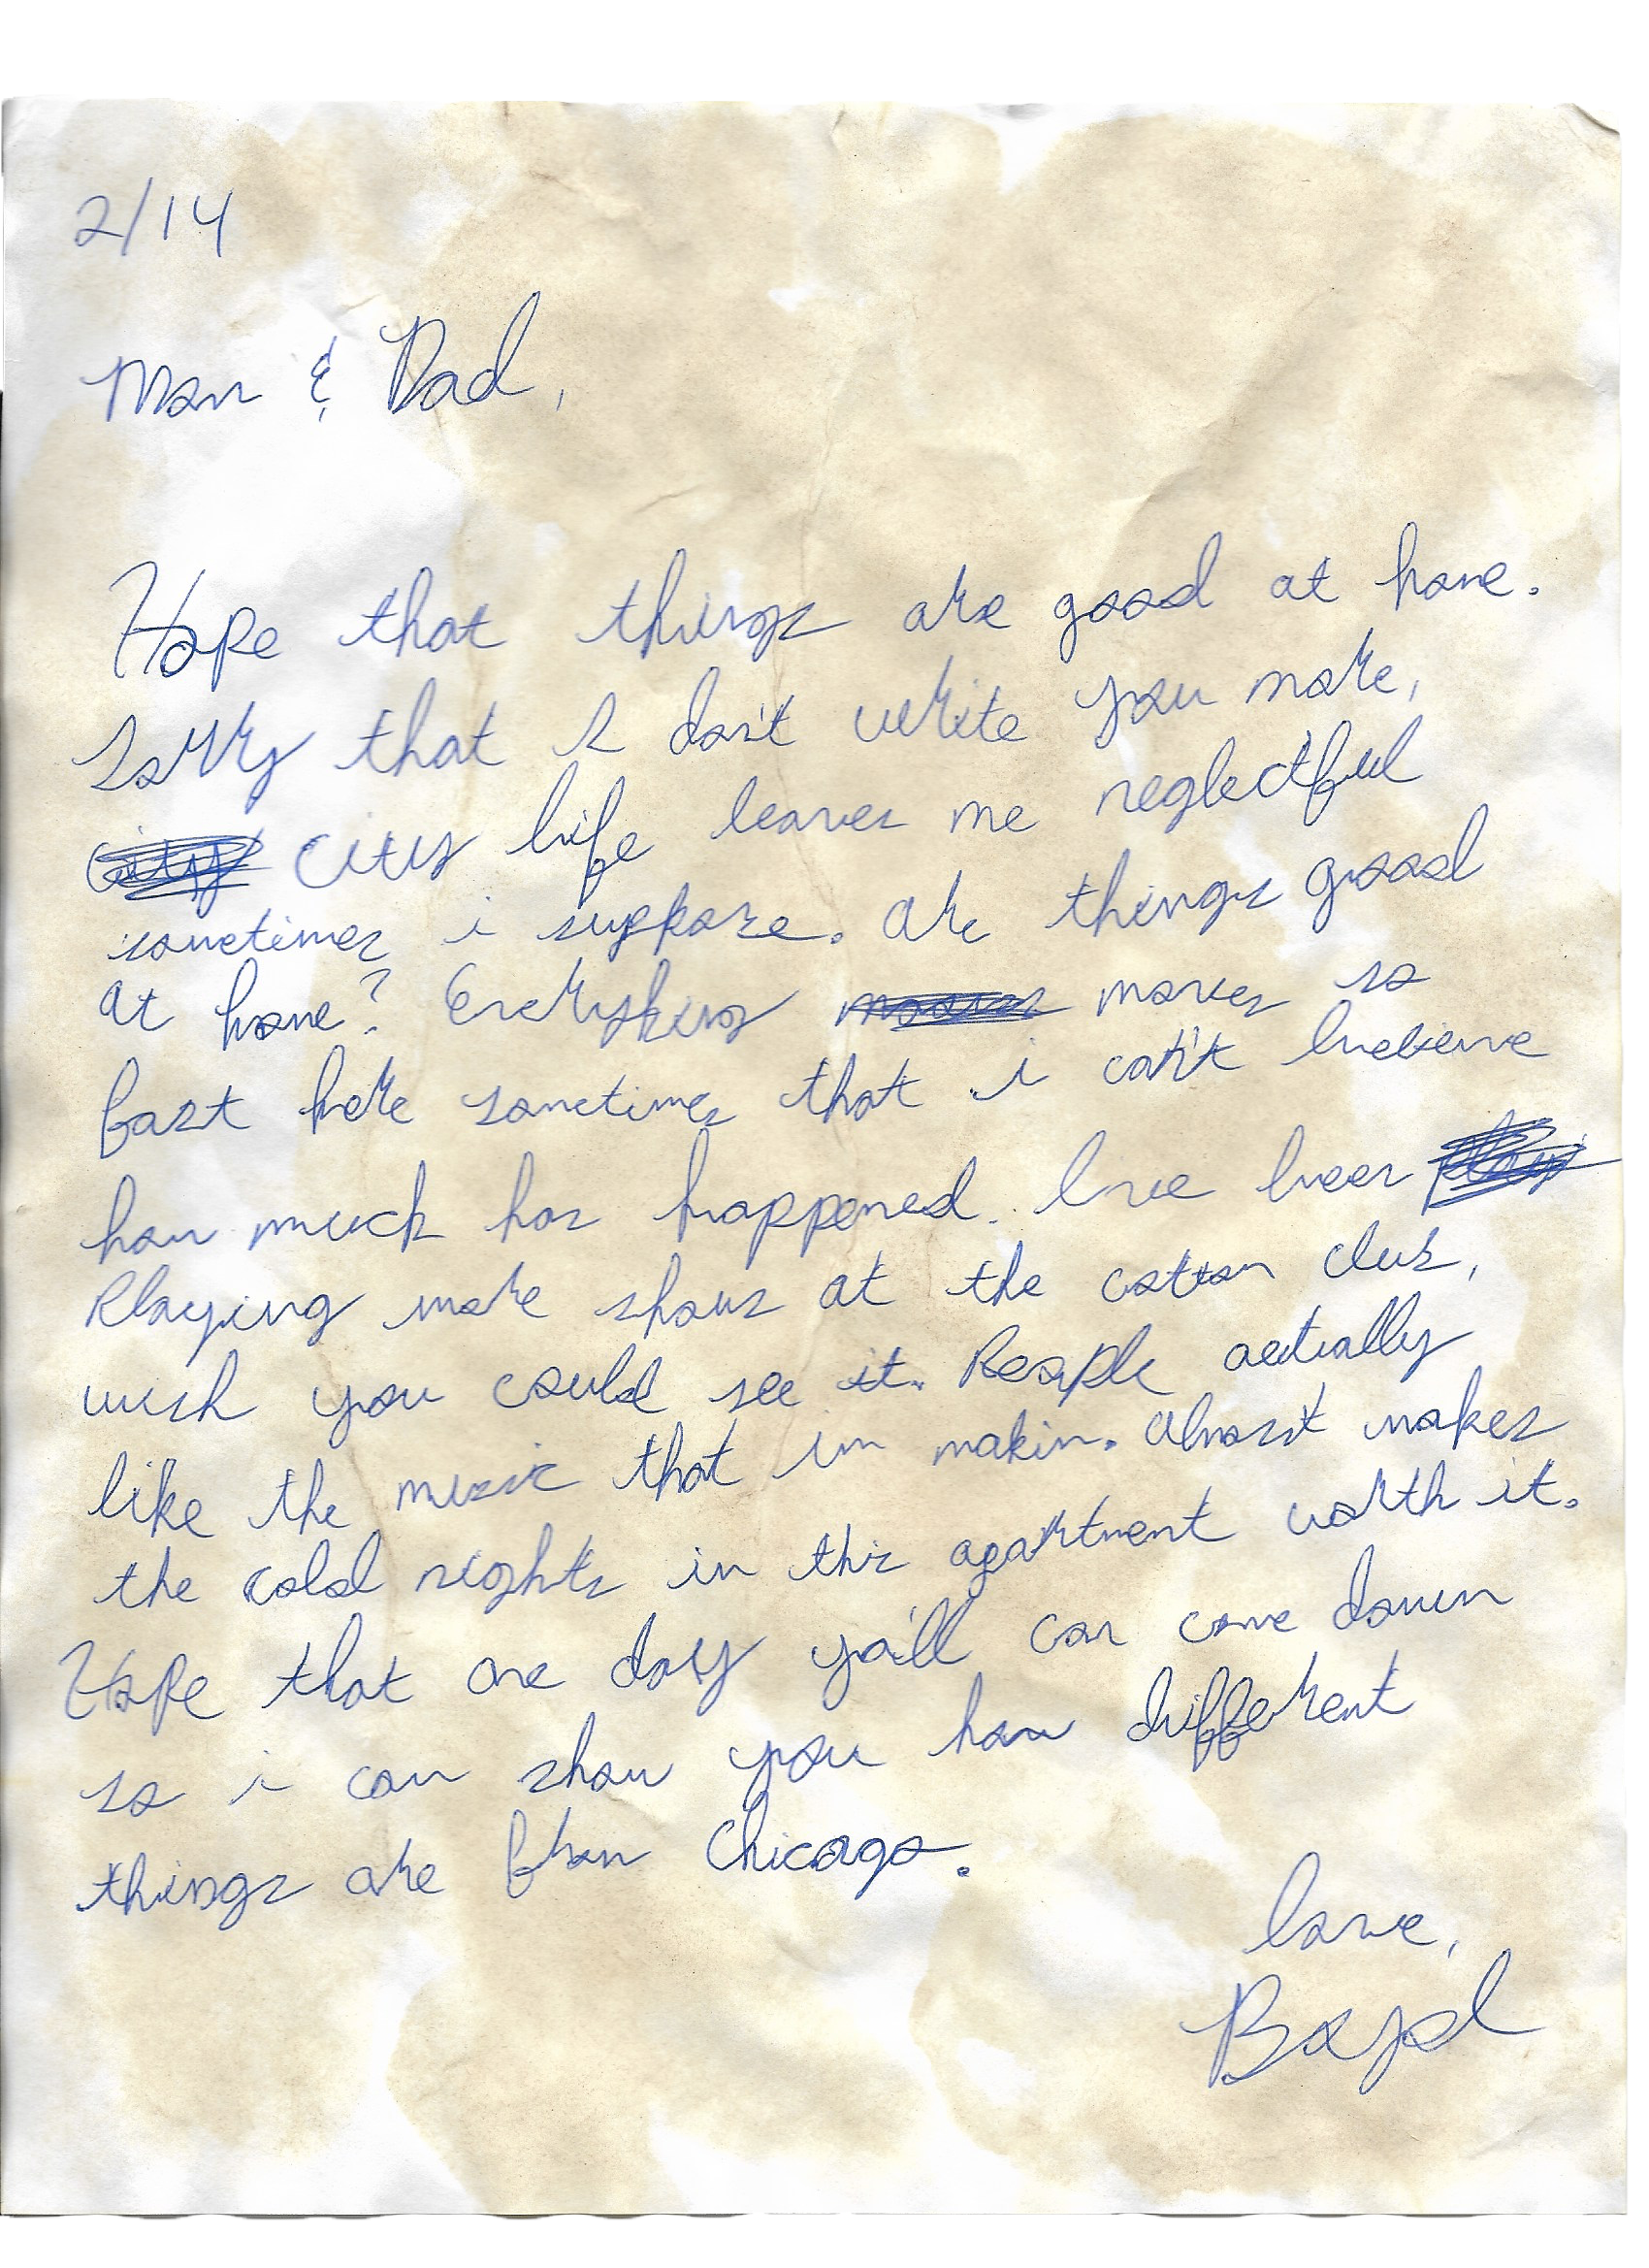 2/14
Mom & Dad,
Hope that things are good at home.
Sorry that I don't write you more,
city city life leaves me neglectful
sometimes i suppose. Are things good
at home? Everything moves moves so
fast here sometimes that i can't believe
how much has happened. Ive been play
Playing more shows at the cotton club,
wish you could see it. People actually
like the music that im makin. Almost makes
the cold nights in this apartment worth it.
Hope that one day ya'll can come down
so i can show you how different
things are from Chicago.
Love,
Boyd